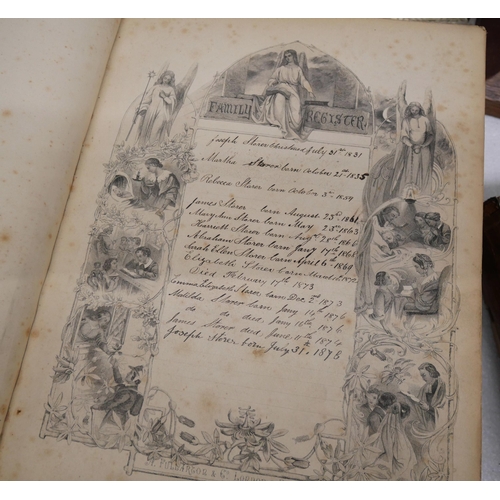 FAMILY REGISTER.
Joseph Storer Christened July 31st 1831
Martha Storer born October 21st 1835
Rebecca Storer born October 3rd 1859
James Storer born August 23rd 1861
Mary Ann Storer born May 23rd 1863
Harriett Storer born Augst 28th 1866
Abraham Storer born Jany 19th 1868
Sarah Ellen Storer born April 6th 1869
Elizabeth Storer born March 1872
Died February 17th 1873
Emma Elizabeth Storer born Dec 2nd 1873
Matilda Storer born Jany 14th 1876
do do died Jany 16th 1876
James Storer died June 11th 1874
Joseph Storer born July 31st 1878
FULLARTON & Co